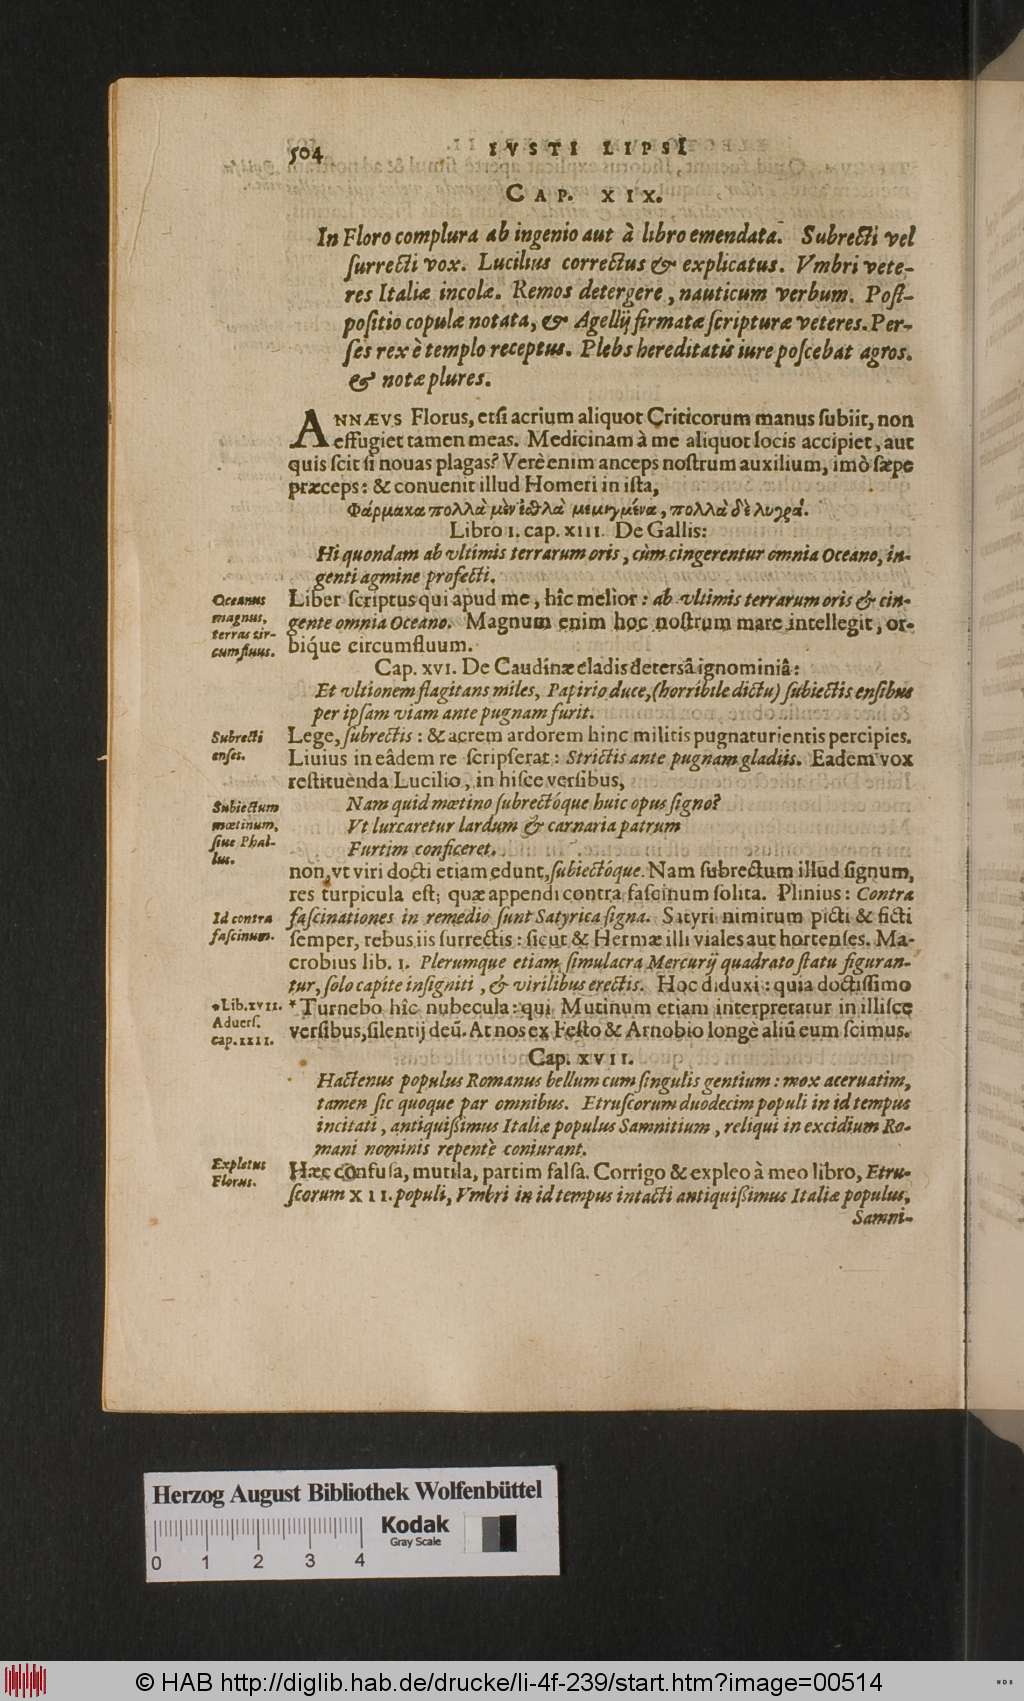 504 IVSTI LIPSI
CAP. XIX.
In Floro complura ab ingenio aut à libro emendata. Subrecti vel
surrecti vox. Lucilius correctus & explicatus. Vmbri vete-
res Italiæ incolæ. Remos detergere, nauticum verbum. Post-
positio copulæ notata, & Agellij firmatæ scripturæ veteres. Per-
ses rex è templo receptus. Plebs hereditatis iure poscebat agros.
& notæ plures.
ANNÆVS Florus, etsi acrium aliquot Criticorum manus subiit, non
effugiet tamen meas. Medicinam à me aliquot locis accipiet, aut
quis scit si nouas plagas? Verè enim anceps nostrum auxilium, imò sæpe
præceps: & conuenit illud Homeri in ista,
Φάρμακα πολλὰ μὲν ἐσθλὰ μεμιγμένα, πολλὰ δὲ λυγρά.
Libro I. cap. XIII. De Gallis:
Hi quondam ab vltimis terrarum oris, cùm cingerentur omnia Oceano, in-
genti agmine profecti.
Oceanus
magnus,
terras cir-
cumfluus.
Liber scriptus qui apud me, hîc melior: ab vltimis terrarum oris & cin-
gente omnia Oceano. Magnum enim hoc nostrum mare intellegit, or-
bíque circumfluum.
Cap. XVI. De Caudinæ cladis detersâ ignominiâ:
Et vltionem flagitans miles, Papirio duce, (horribile dictu) subiectis ensibus
per ipsam viam ante pugnam furit.
Subrecti
enses.
Lege, subrectis: & acrem ardorem hinc militis pugnaturientis percipies.
Liuius in eâdem re scripserat: Strictis ante pugnam gladiis. Eadem vox
restituenda Lucilio, in hisce versibus,
Subiectum
mœtinum,
siue Phal-
lus.
Nam quid mœtino subrectóque huic opus signo?
Vt lurcaretur lardum & carnaria patrum
Furtim conficeret.
non, vt viri docti etiam edunt, subiectóque. Nam subrectum illud signum,
res turpicula est; quæ appendi contra fascinum solita. Plinius: Contra
Id contra
fascinum.
fascinationes in remedio sunt Satyrica signa. Satyri nimirum picti & ficti
semper, rebus iis surrectis: sicut & Hermæ illi viales aut hortenses. Ma-
crobius lib. I. Plerumque etiam simulacra Mercurij quadrato statu figuran-
tur, solo capite insigniti, & virilibus erectis. Hoc diduxi: quia doctissimo
*Lib. XVII.
Aduers.
cap. XXII.
*Turnebo hîc nubecula: qui Mutinum etiam interpretatur in illisce
versibus, silentij deū. At nos ex Festo & Arnobio longè aliū eum scimus.
Cap. XVII.
Hactenus populus Romanus bellum cum singulis gentium: mox aceruatim,
tamen sic quoque par omnibus. Etruscorum duodecim populi in id tempus
incitati, antiquißimus Italiæ populus Samnitium, reliqui in excidium Ro-
mani nominis repentè coniurant.
Expletus
Florus.
Hæc confusa, mutila, partim falsa. Corrigo & expleo à meo libro, Etru-
scorum XII. populi, Vmbri in id tempus intacti antiquißimus Italiæ populus,
Samni-
Herzog August Bibliothek Wolfenbüttel
Kodak
Gray Scale
0 1 2 3 4
© HAB http://diglib.hab.de/drucke/li-4f-239/start.htm?image=00514